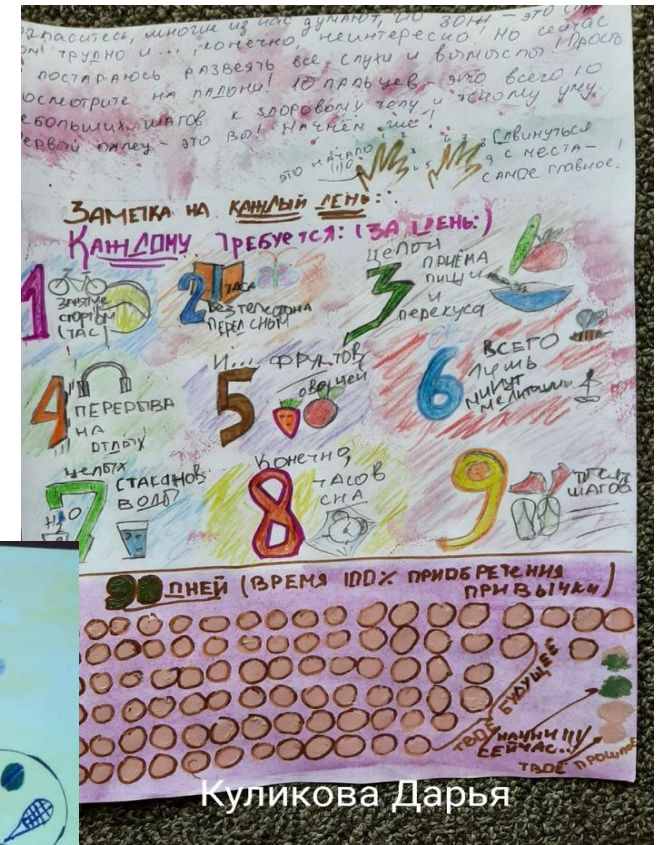 многие из нас думают, что ЗОЖ – это
трудно и... конечно неинтересно! Но сейчас
постараюсь развеять все слухи и вымыслы! Просто
посмотрите на ладони! 10 пальцев – это всего 10
небольших шагов к здоровому телу и ясному уму.
Первый палец – это вы! Начнём же!
это начало
Сдвинуться
с места –
самое главное!
Заметка на каждый день:
Каждому требуется: (за день:)
1
занятие
спортом
(час)
2
часа
без телефона
перед сном
3
целых
приёма
пищи
и
перекуса
4
перерыва
на
отдых
И... фруктов
5
овощей
6
всего
лишь
минут
медитации
целых
7
стаканов
воды
H2O
Конечно,
8
часов
сна
9
тысяч
шагов
90 дней (время 100% приобретения
привычки)
твоё будущее
начни
сейчас..
твоё прошлое
Куликова Дарья